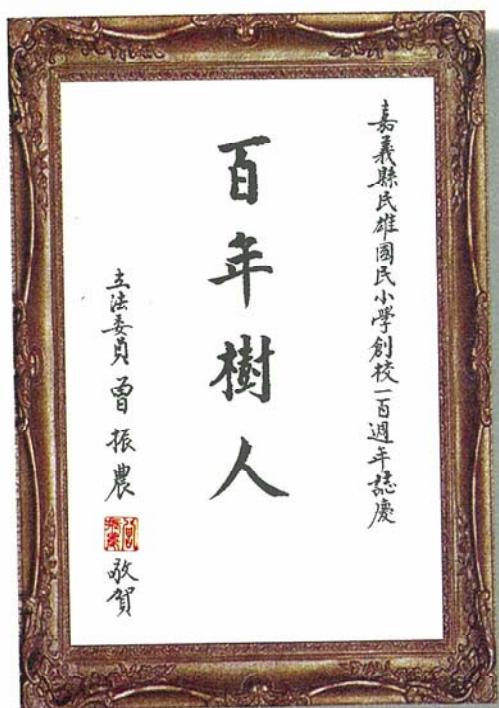 嘉義縣民雄國民小學創校一百週年誌慶
百年樹人
立法委員曾振農
敬賀